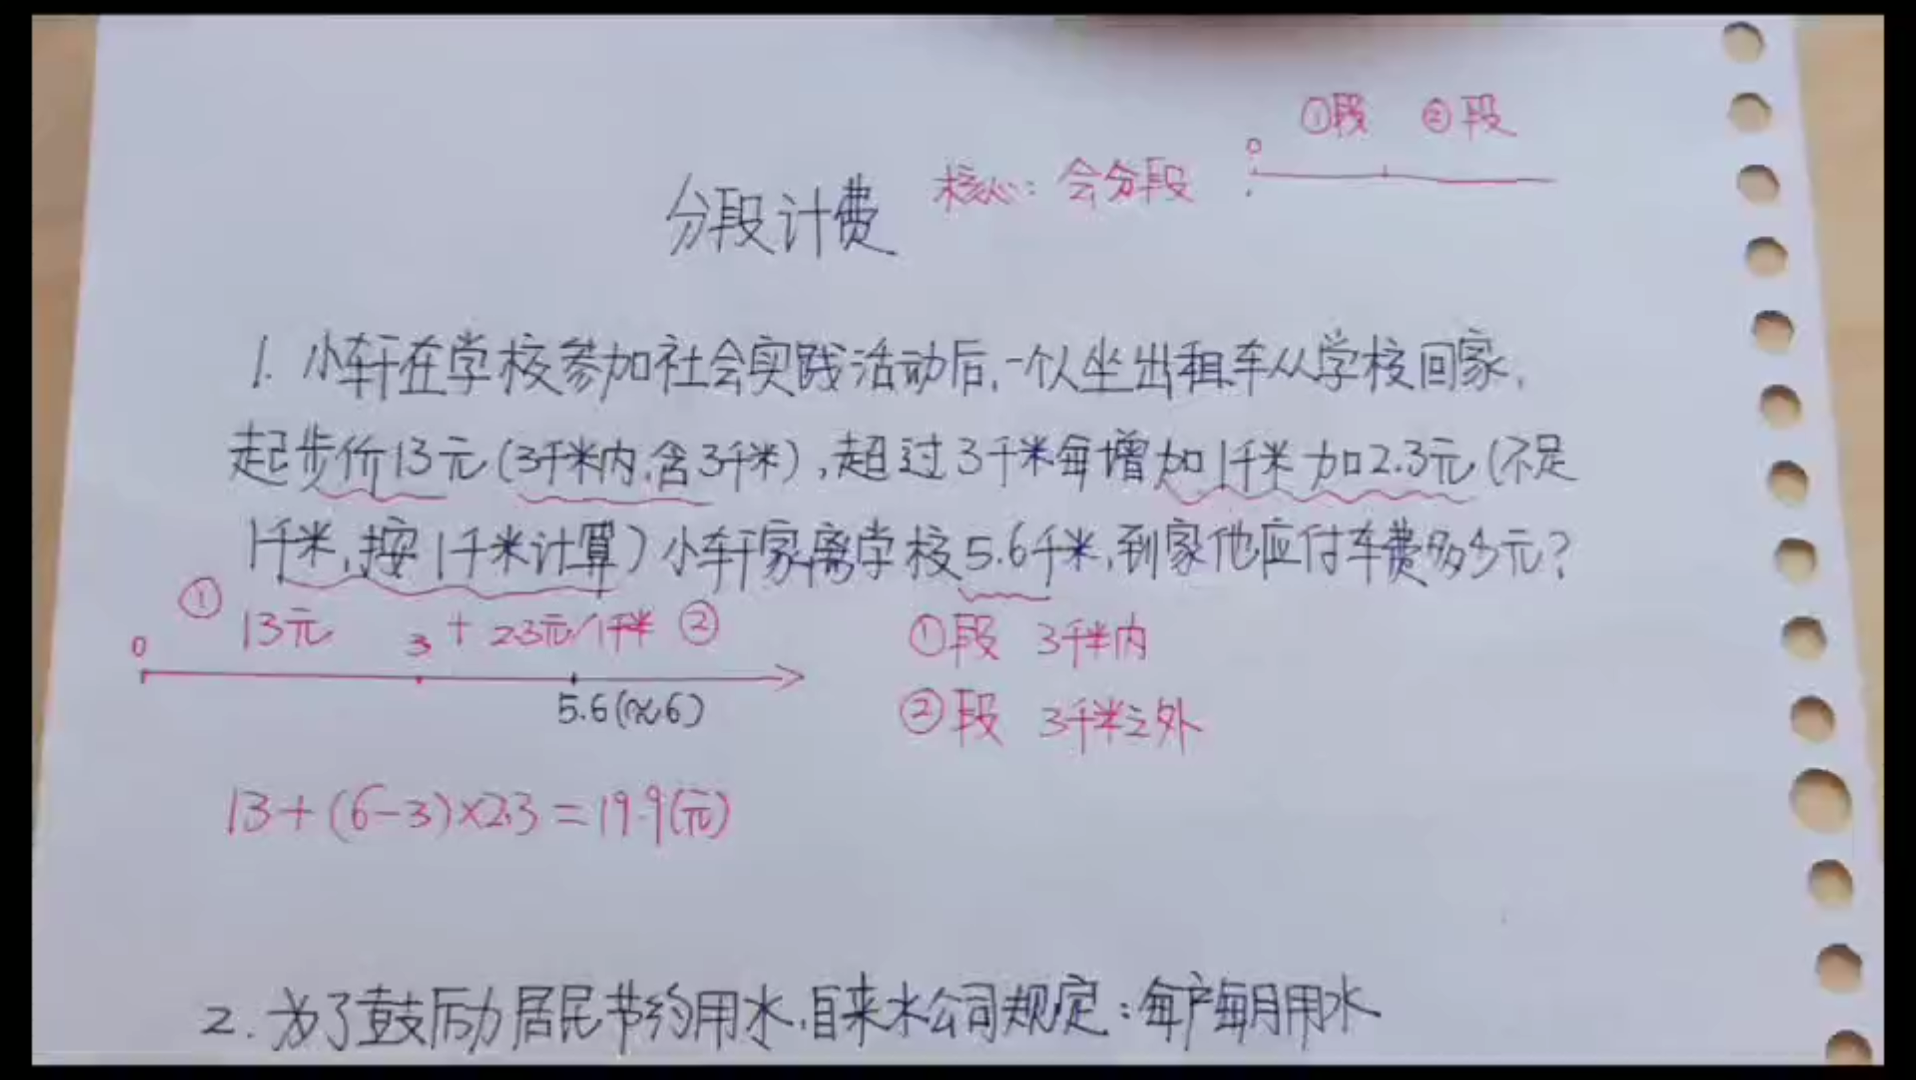 ①段 ②段
0
分段计费 核心：会分段
1. 小轩在学校参加社会实践活动后,一个人坐出租车从学校回家,
起步价13元(3千米内,含3千米),超过3千米每增加1千米加2.3元(不足
1千米,按1千米计算)小轩家离学校5.6千米,到家他应付车费多少元?
① 13元 3 + 2.3元/1千米 ②
0
5.6(≈6)
①段 3千米内
②段 3千米之外
13+(6-3)×2.3=19.9(元)
2.为了鼓励居民节约用水,自来水公司规定:每户每月用水